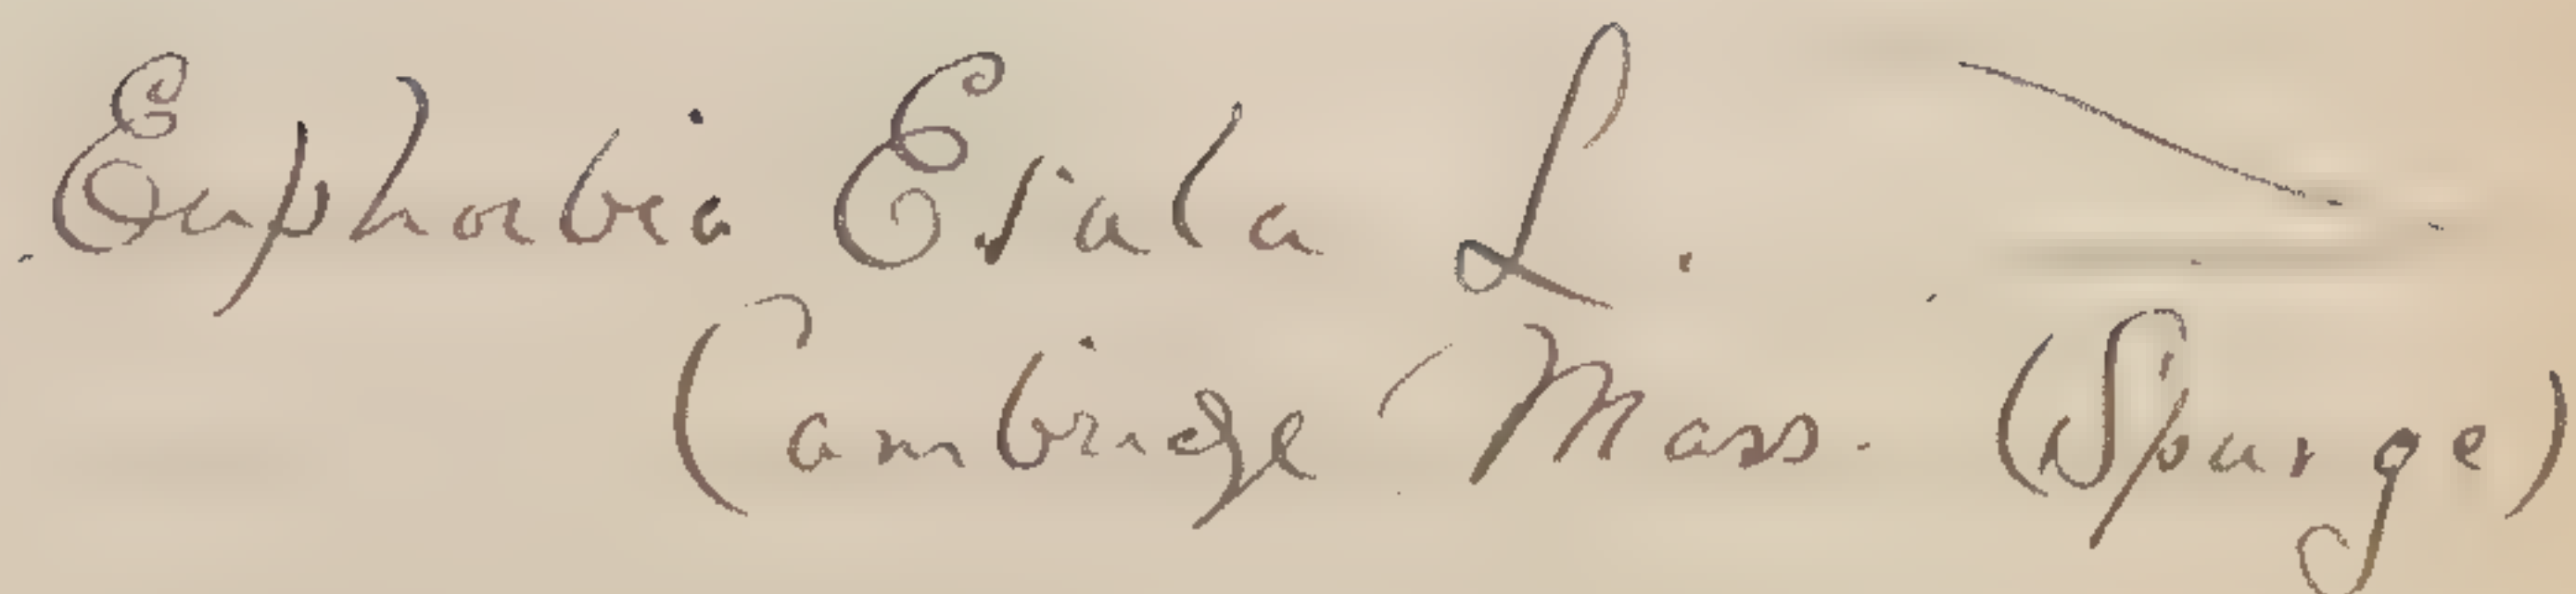 Euphorbia Esula L.
Cambridge Mass. (Spurge)